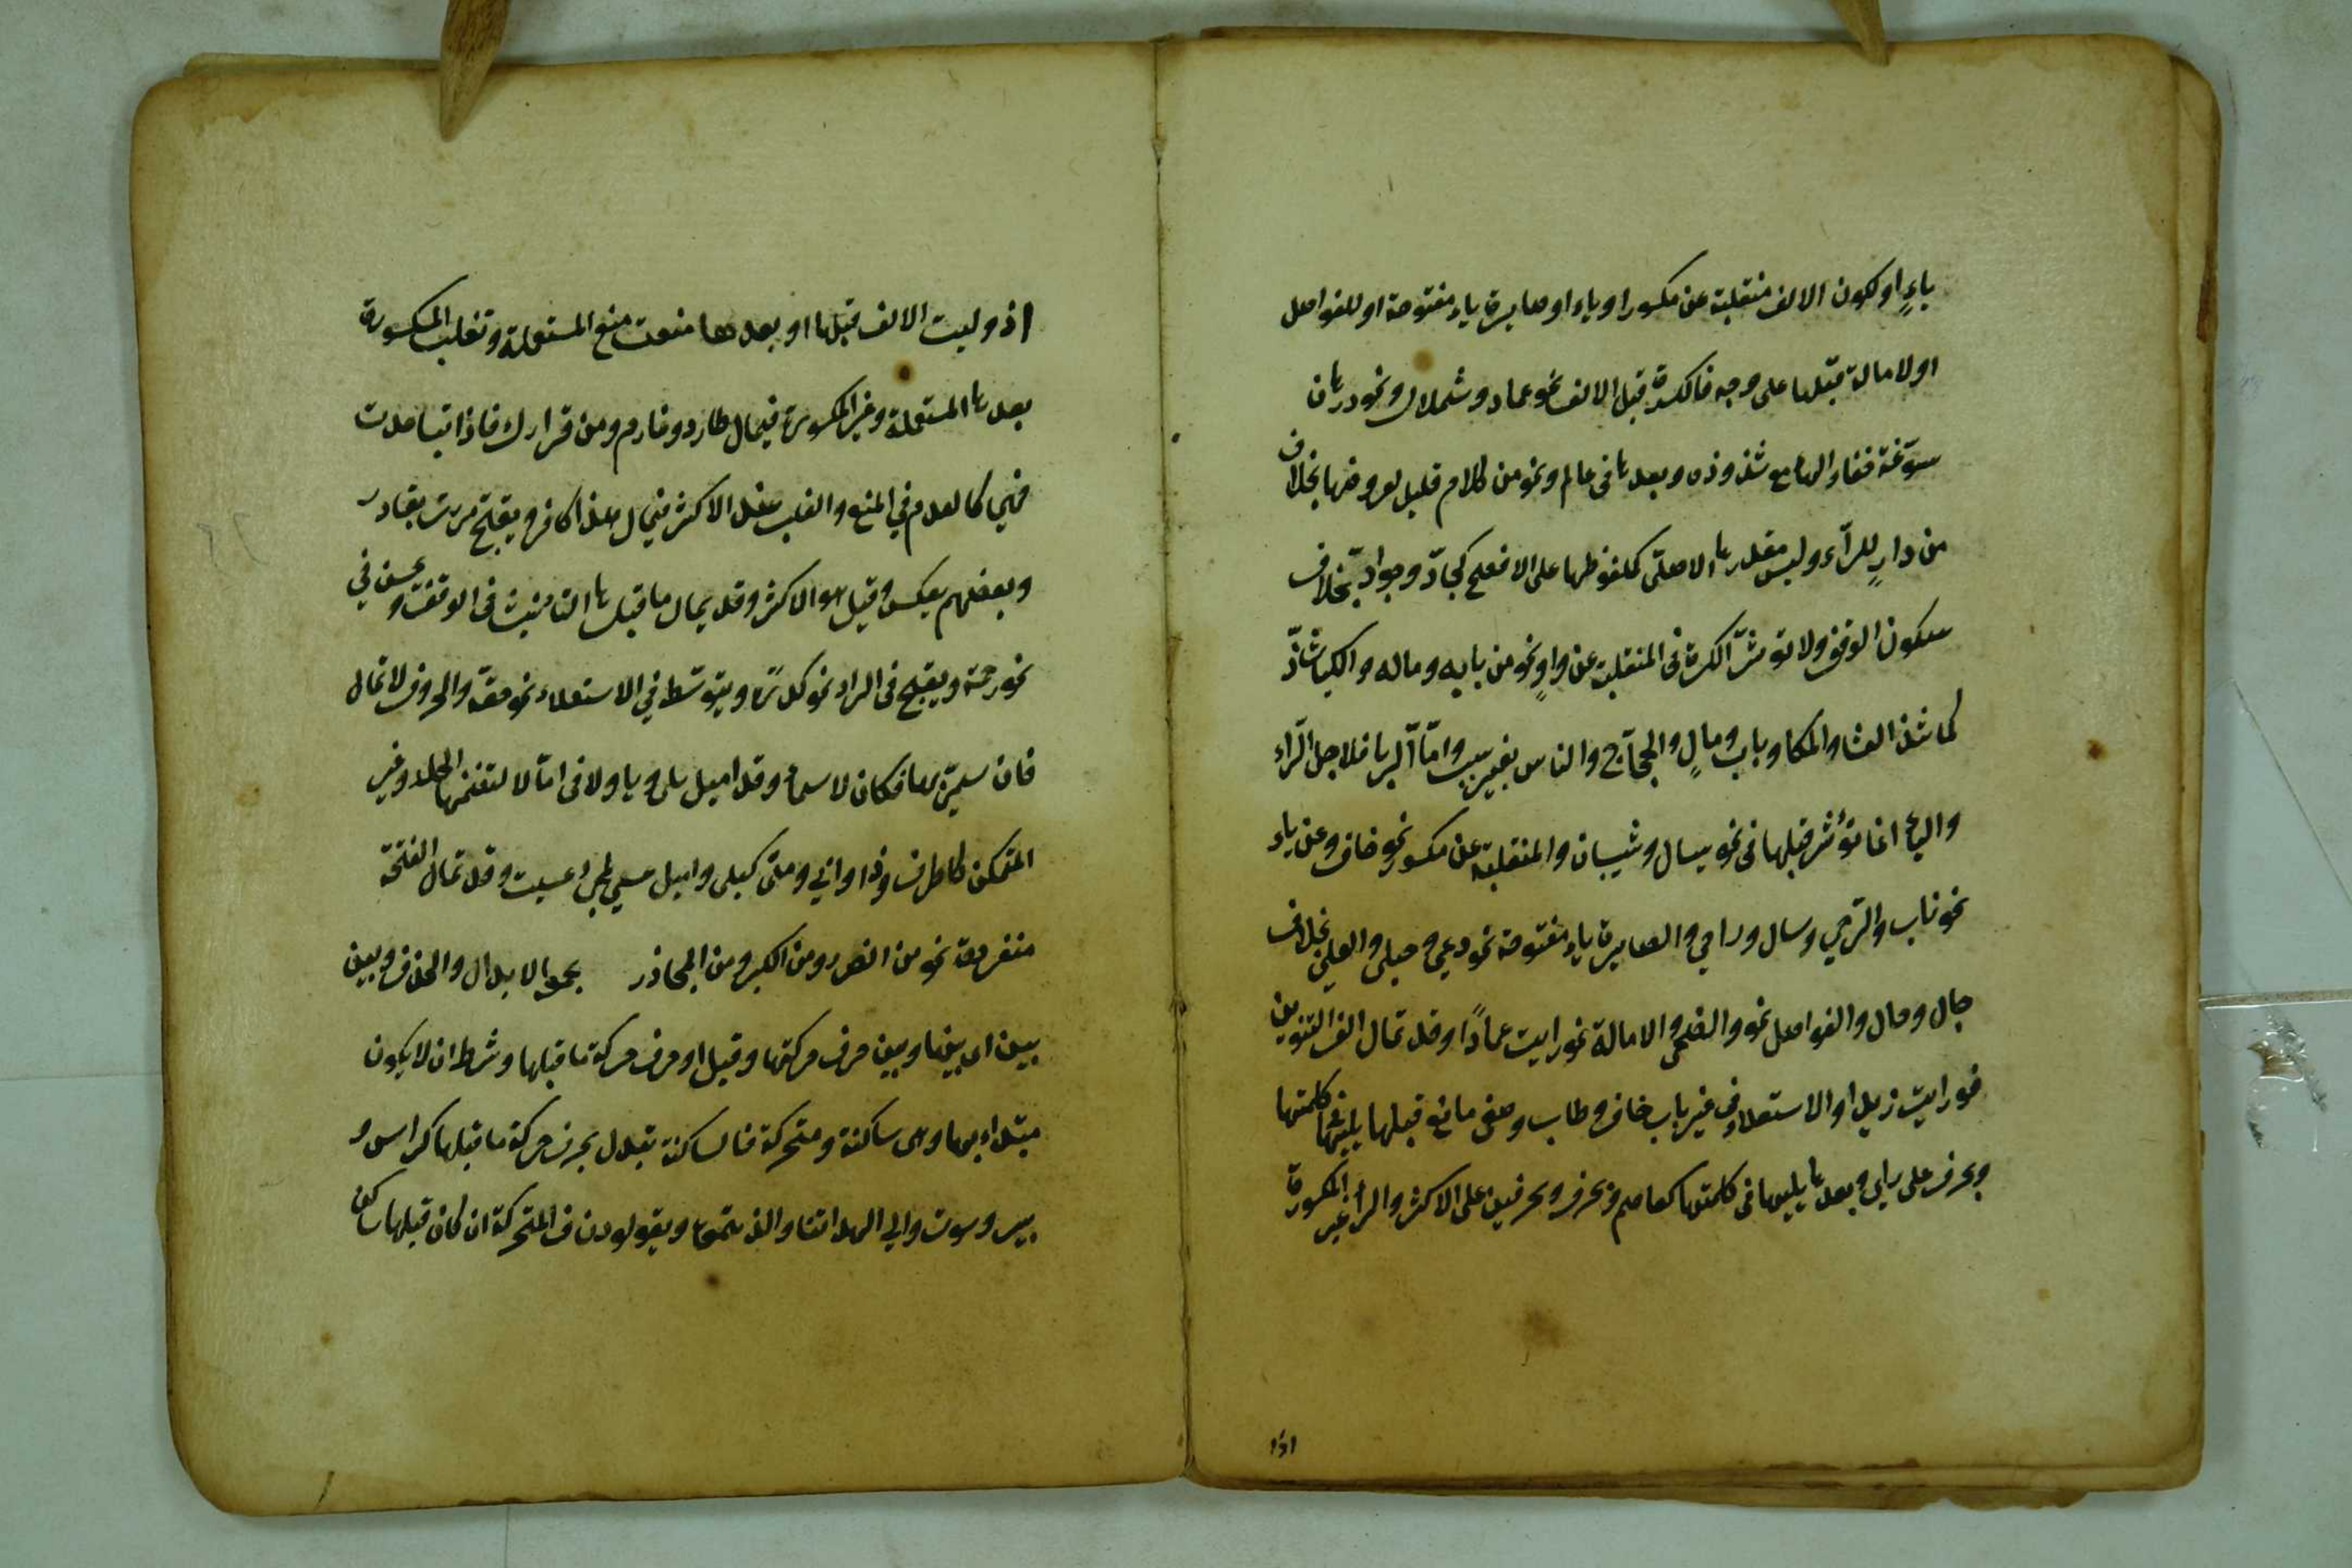 ياءٍ او لكون الالف منقلبة عن مكسور او ياء او صايرة ياء مفتوحة او للفواصل
او لامالة قبلها على وجه فالكسرة قبل الالف نحو عماد وشملال ونحو درهمان
سوّغه خفاء الهاء مع شذوذه وبعدها فى عالم ونحو من كلام قليل لعروضها بخلاف
من دارٍ للرآء وليس مقدرها الاصلىّ كملفوظها على الافصح كجادّ وجوادّ بخلاف
سكون الوقف ولا تؤثرّ الكسرة فى المنقلبة عن واوٍ نحو من بابه وماله والكبا شاذّ
كما شذ العشا والمكا وباب ومالٍ والحجّاج والناس بغير سبب وامّا الربا فلاجل الرّاء
والياء انما تؤثر قبلها فى نحو سيال وشيبان والمنقلبة عن مكسور نحو خاف وعن ياء
نحو ناب والرّحي وسال ورمي والصايرة ياء مفتوحة نحو دعي وحبلى والعلي بخلاف
جال وحال والفواصل نحو والضحى والامالة نحو رايت عمادًا وقد تمال الف التنوين
نحو رايت زيدا والاستعلاء فى غير باب خاف وطاب وصغى مانع قبلها يليها فى كلمتها
وبحرف على راي وبعدها يليها فى كلمتها كعاصم وبحرف وبحرفين على الاكثر والرآء غير المكسورة
اذا
اذ وليت الالف قبلها او بعدها منعت منع المستعلية وتغلب المكسورة
بعدها المستعلية وغير المكسورة فيمال طارد وغارم ومن قرارك فاذا تباعدت
فهي كالعدم في المنع والغلب عند الاكثر فيمال هذا كافر ويفتح مررت بقادر
وبعضهم يعكس وقيل هو الاكثر وقد يمال ما قبل هاء التانيث فى الوقف ويحسن في
نحو رحمة ويقبح فى الراء نحو كدرة ويتوسّط في الاستعلاء نحو حقة والحروف لا تمال
فان سمّي بها فكالاسماء وقد اميل بلى ويا ولا فى امّا لا لتضمنها الجملة وغير
المتمكن كالحرف وذا وانّي ومتى كبلى واميل عسي لمجئ عسيت وقد تمال الفتحة
منفردة نحو من الضرر ومن الكبر ومن المحاذر يجمعه الابدال والحذف وبين
بين اى بينها وبين حرف حركتها وقيل او حرف حركة ما قبلها وشرط ان لا يكون
مبتداء بها وهى ساكنة ومتحركة فالساكنة تبدل بحرف حركة ما قبلها كراس و
بير وسوت والي الهداتنا والذيتمن ويقولوذن فالمتحركة ان كان قبلها ساكن